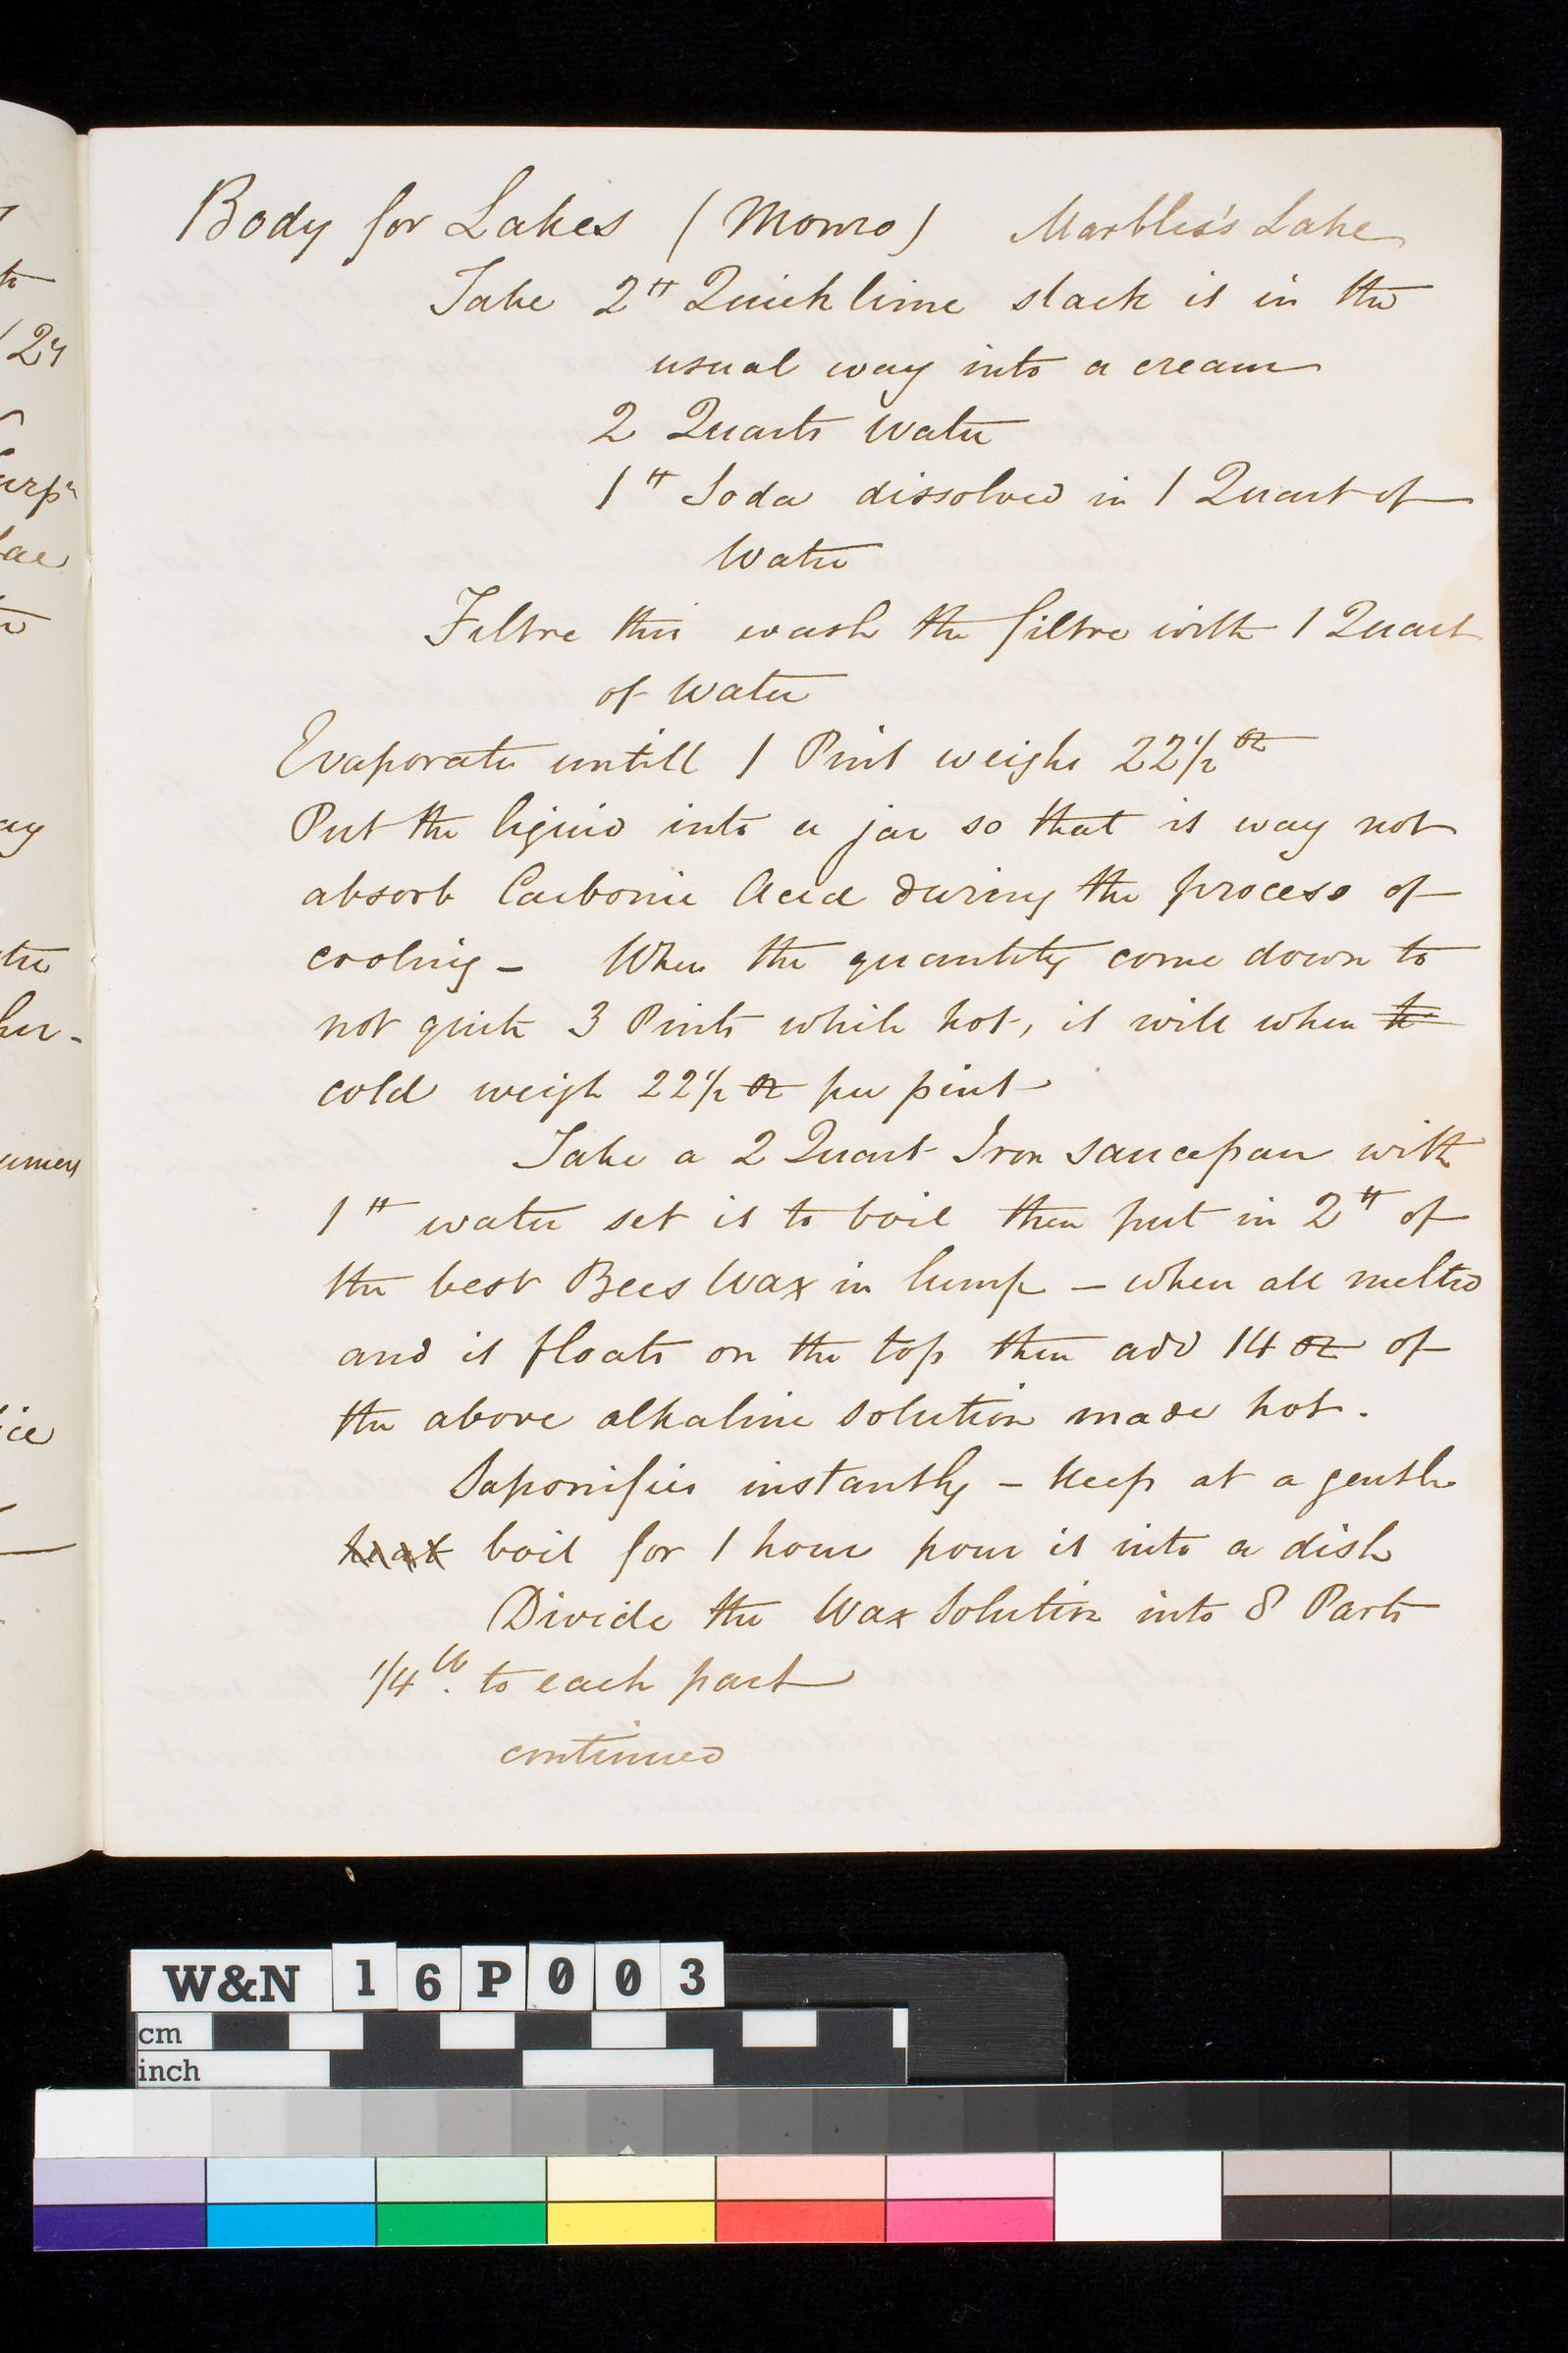 Body for Lakes (Monro) Marbles's Lake
Take 2 lb Quick lime slack it in the
usual way into a cream
2 Quarts Water
1 lb Soda dissolved in 1 Quart of
Water
Filtre this wash the filtre with 1 Quart
of Water
Evaporate untill 1 Pint weighs 22 1/2 oz
Put the liquid into a jar so that it may not
absorb Carbonic Acid during the process of
cooling - When the quantity come down to
not quite 3 Pints while hot, it will when to
cold weigh 22 1/2 oz per pint
Take a 2 Quart Iron saucepan with
1 lb water set it to boil then put in 2 lb of
the best Bees Wax in lump - when all melted
and it floats on the top then add 14 oz of
the above alkaline solution made hot.
Saponifies instantly - Keep at a gentle
heat boil for 1 hour pour it into a dish
Divide the Wax Solution into 8 Parts
1/4 lb. to each part
continued
124
turpn
Lac
ay
ter
her-
ice
W&N 16P003
cm
inch